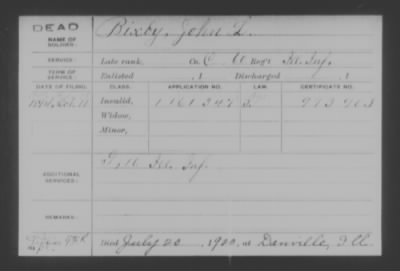 DEAD
NAME OF SOLDIER: Bixby, John L.
SERVICE: Late rank, Co. Reg't Ill. Inf.
TERM OF SERVICE: Enlisted , 1 Discharged , 1
DATE OF FILING. CLASS. APPLICATION NO. LAW. CERTIFICATE NO.
Invalid, 1 161 347
Widow,
Minor,
ADDITIONAL SERVICES: Ill. Inf.
REMARKS:
Died July 20, 1900, at Danville, Ill.